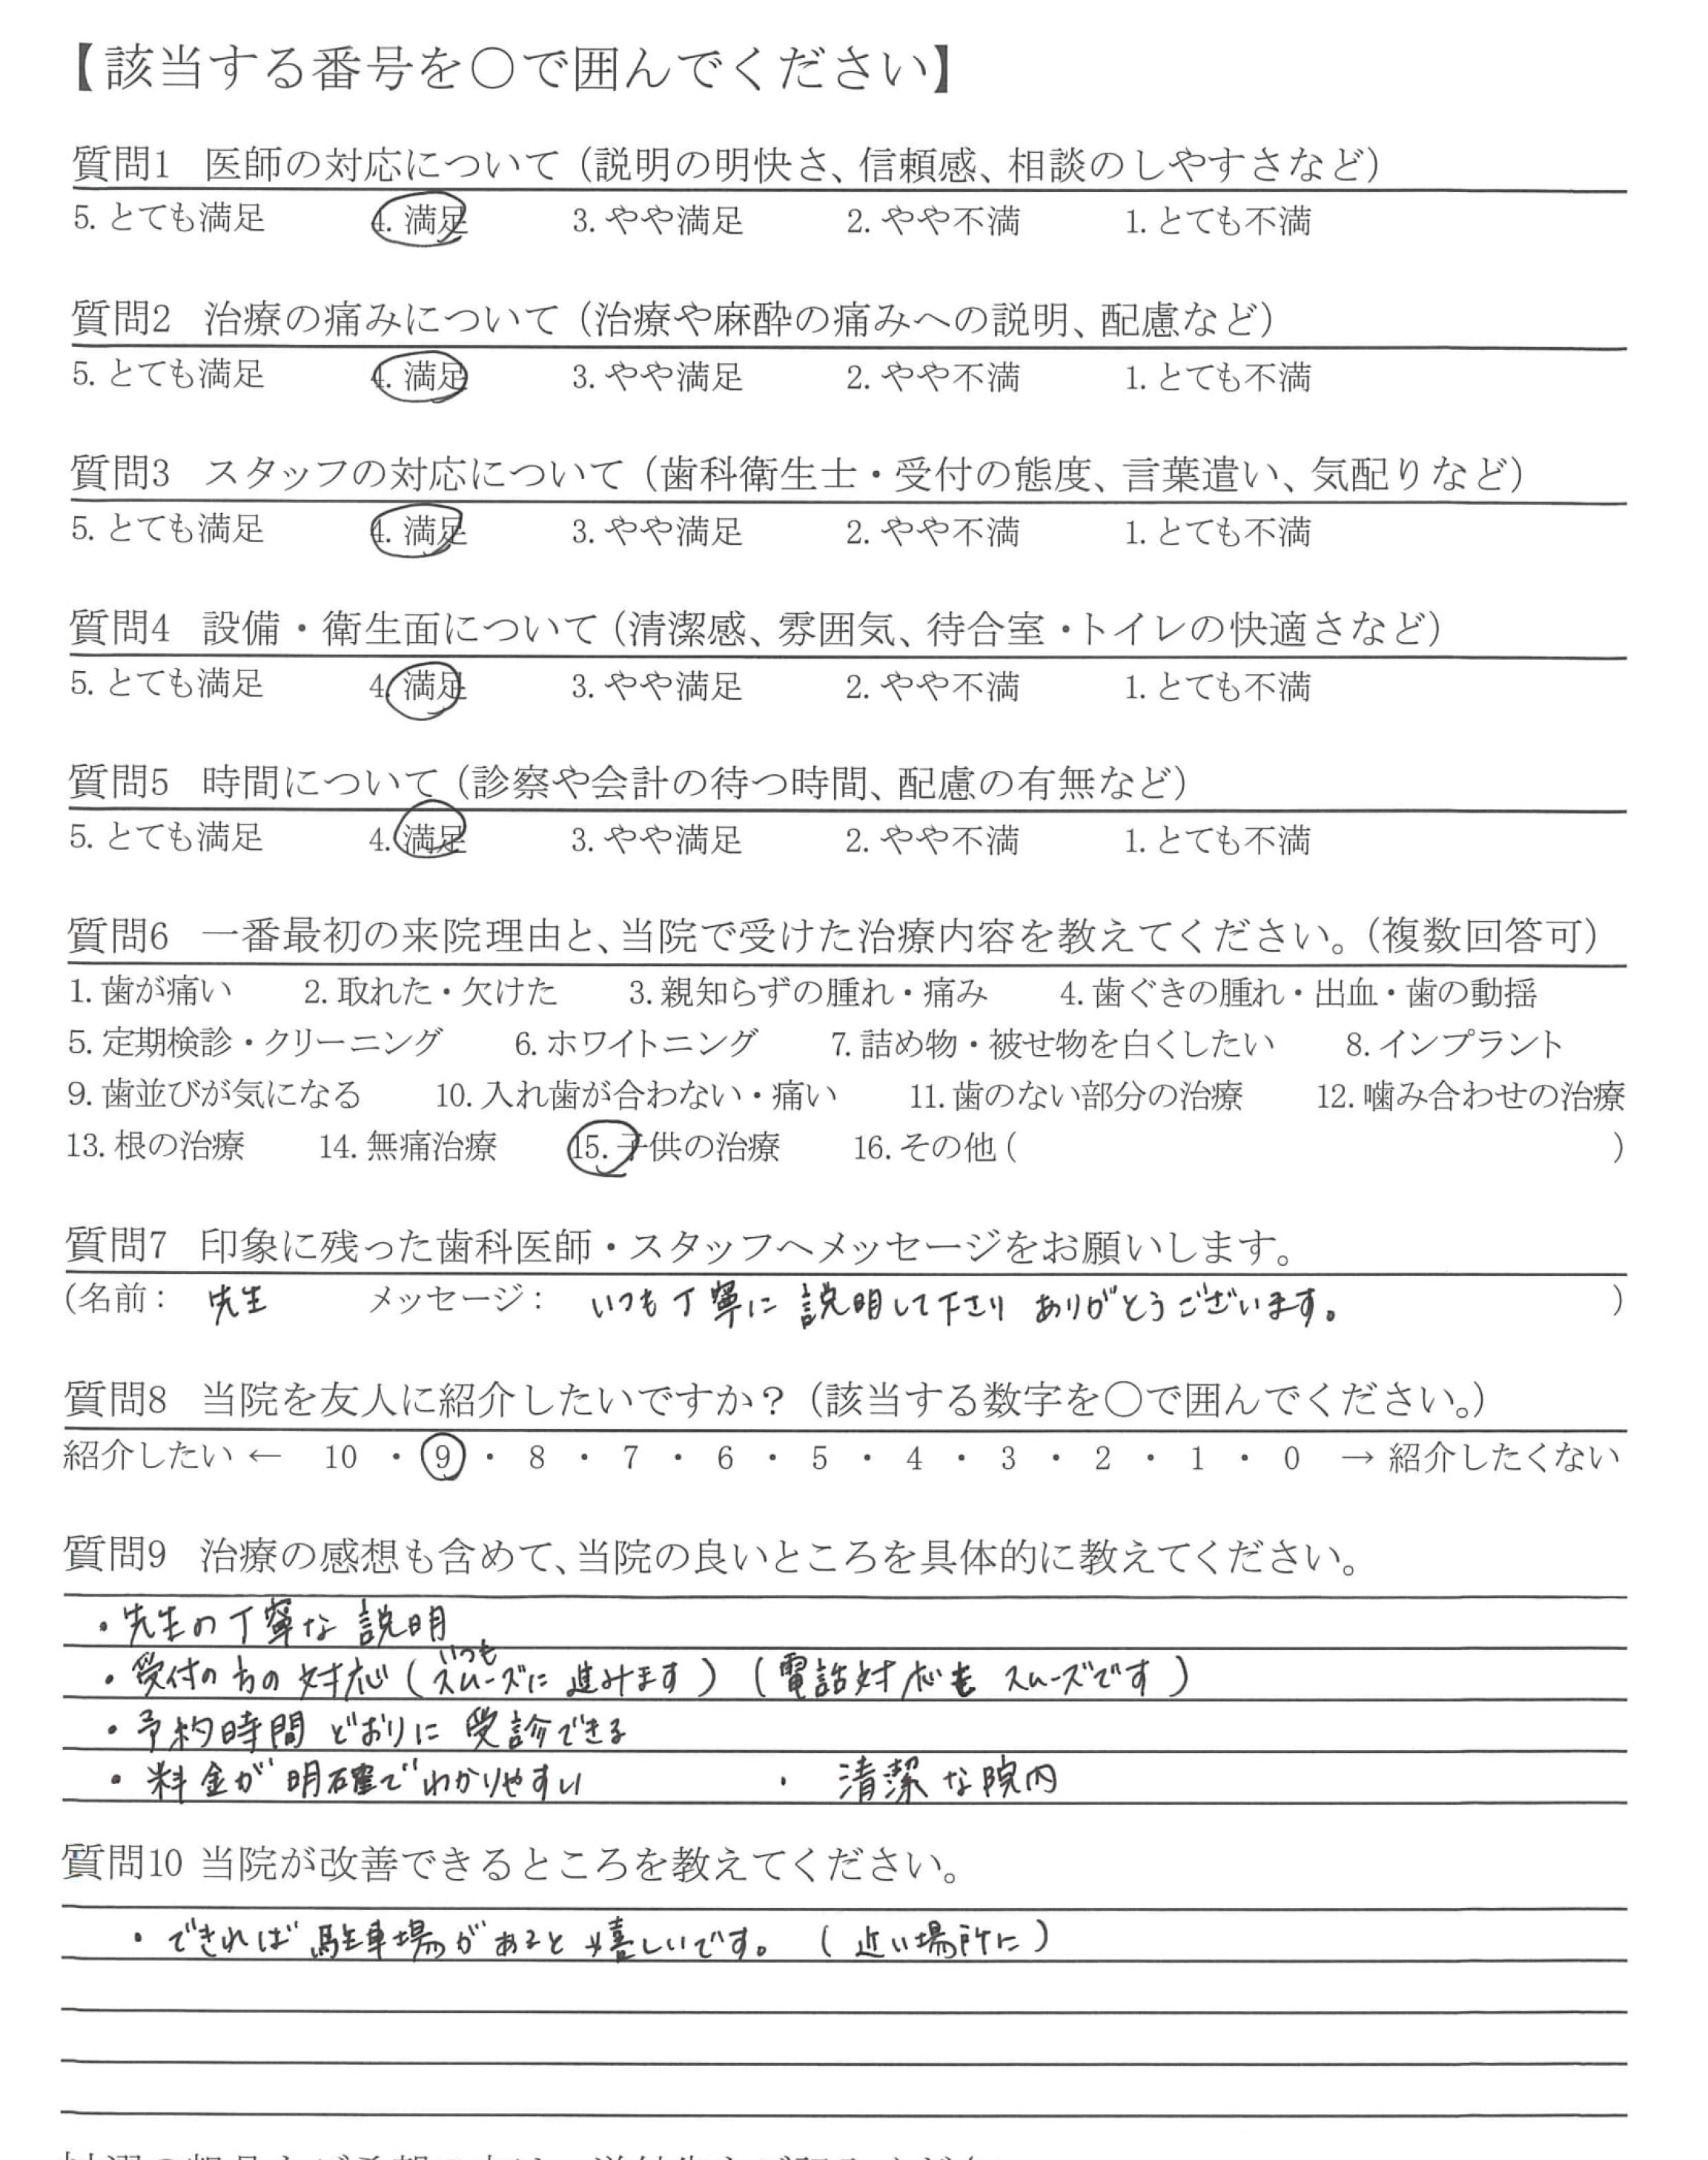 【該当する番号を○で囲んでください】
質問1 医師の対応について（説明の明快さ、信頼感、相談のしやすさなど）
5. とても満足 4. 満足 3. やや満足 2. やや不満 1. とても不満
質問2 治療の痛みについて（治療や麻酔の痛みへの説明、配慮など）
5. とても満足 4. 満足 3. やや満足 2. やや不満 1. とても不満
質問3 スタッフの対応について（歯科衛生士・受付の態度、言葉遣い、気配りなど）
5. とても満足 4. 満足 3. やや満足 2. やや不満 1. とても不満
質問4 設備・衛生面について（清潔感、雰囲気、待合室・トイレの快適さなど）
5. とても満足 4. 満足 3. やや満足 2. やや不満 1. とても不満
質問5 時間について（診察や会計の待つ時間、配慮の有無など）
5. とても満足 4. 満足 3. やや満足 2. やや不満 1. とても不満
質問6 一番最初の来院理由と、当院で受けた治療内容を教えてください。（複数回答可）
1. 歯が痛い 2. 取れた・欠けた 3. 親知らずの腫れ・痛み 4. 歯ぐきの腫れ・出血・歯の動揺
5. 定期検診・クリーニング 6. ホワイトニング 7. 詰め物・被せ物を白くしたい 8. インプラント
9. 歯並びが気になる 10. 入れ歯が合わない・痛い 11. 歯のない部分の治療 12. 噛み合わせの治療
13. 根の治療 14. 無痛治療 15. 子供の治療 16. その他（ ）
質問7 印象に残った歯科医師・スタッフへメッセージをお願いします。
（名前： 先生 メッセージ： いつも丁寧に説明して下さり ありがとうございます。 ）
質問8 当院を友人に紹介したいですか？（該当する数字を○で囲んでください。）
紹介したい ← 10 ・ 9 ・ 8 ・ 7 ・ 6 ・ 5 ・ 4 ・ 3 ・ 2 ・ 1 ・ 0 → 紹介したくない
質問9 治療の感想も含めて、当院の良いところを具体的に教えてください。
・先生の丁寧な説明
・受付の方の対応（いつもスムーズに進みます）（電話対応もスムーズです）
・予約時間どおりに受診できる
・料金が明確でわかりやすい ・清潔な院内
質問10 当院が改善できるところを教えてください。
・できれば駐車場があると嬉しいです。（近い場所に）